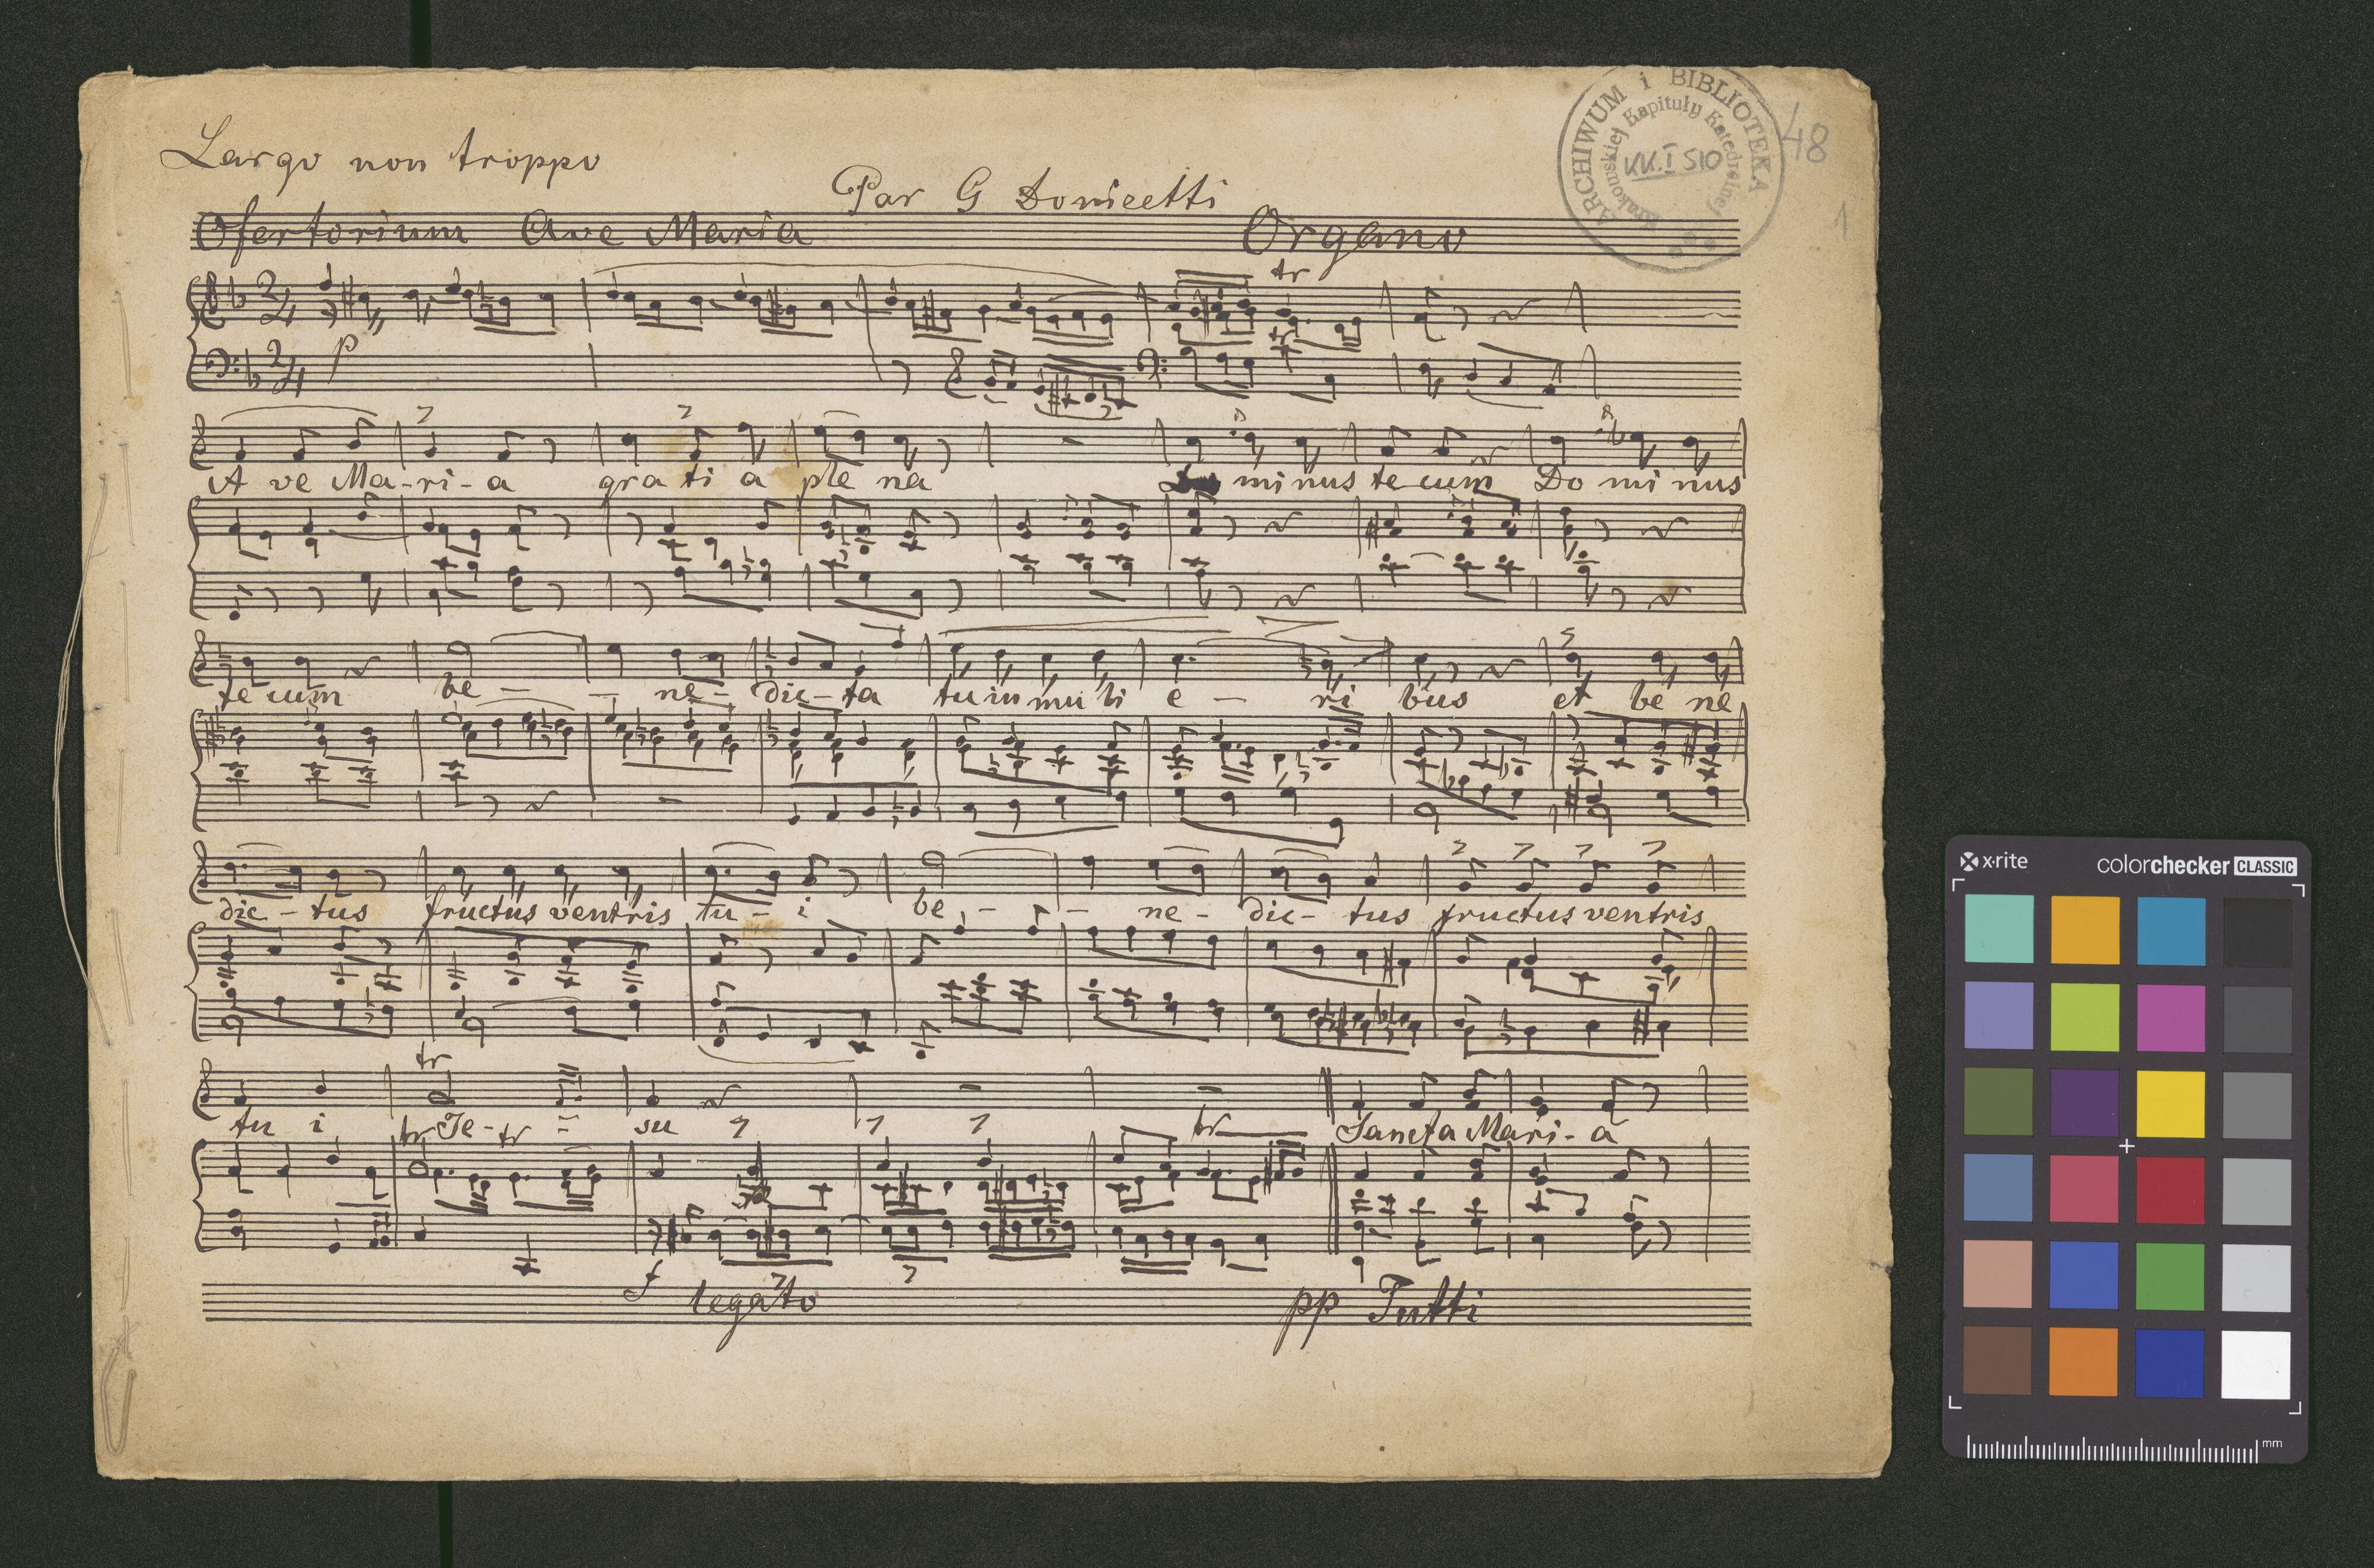 Largo non troppo
Par G Donicetti
Ofertorium Ave Maria Organo
ARCHIWUM i BIBLIOTEKA
Krakowskiej Kapituły Katedralnej
KK.I 510
48
1
tr
2/4
p
2/4
tr
A ve Ma-ri-a gra ti a ple na Do minus te cum Do mi nus
te cum be - - ne-dic-ta tu in mu li e - ri bus et be ne
dic-tus fructus ventris tu-i be - - ne-dic-tus fructus ventris
tr
tu i Je - - su Sancta Mari-a
tr tr tr
f legato pp Tutti
x-rite colorchecker CLASSIC
mm